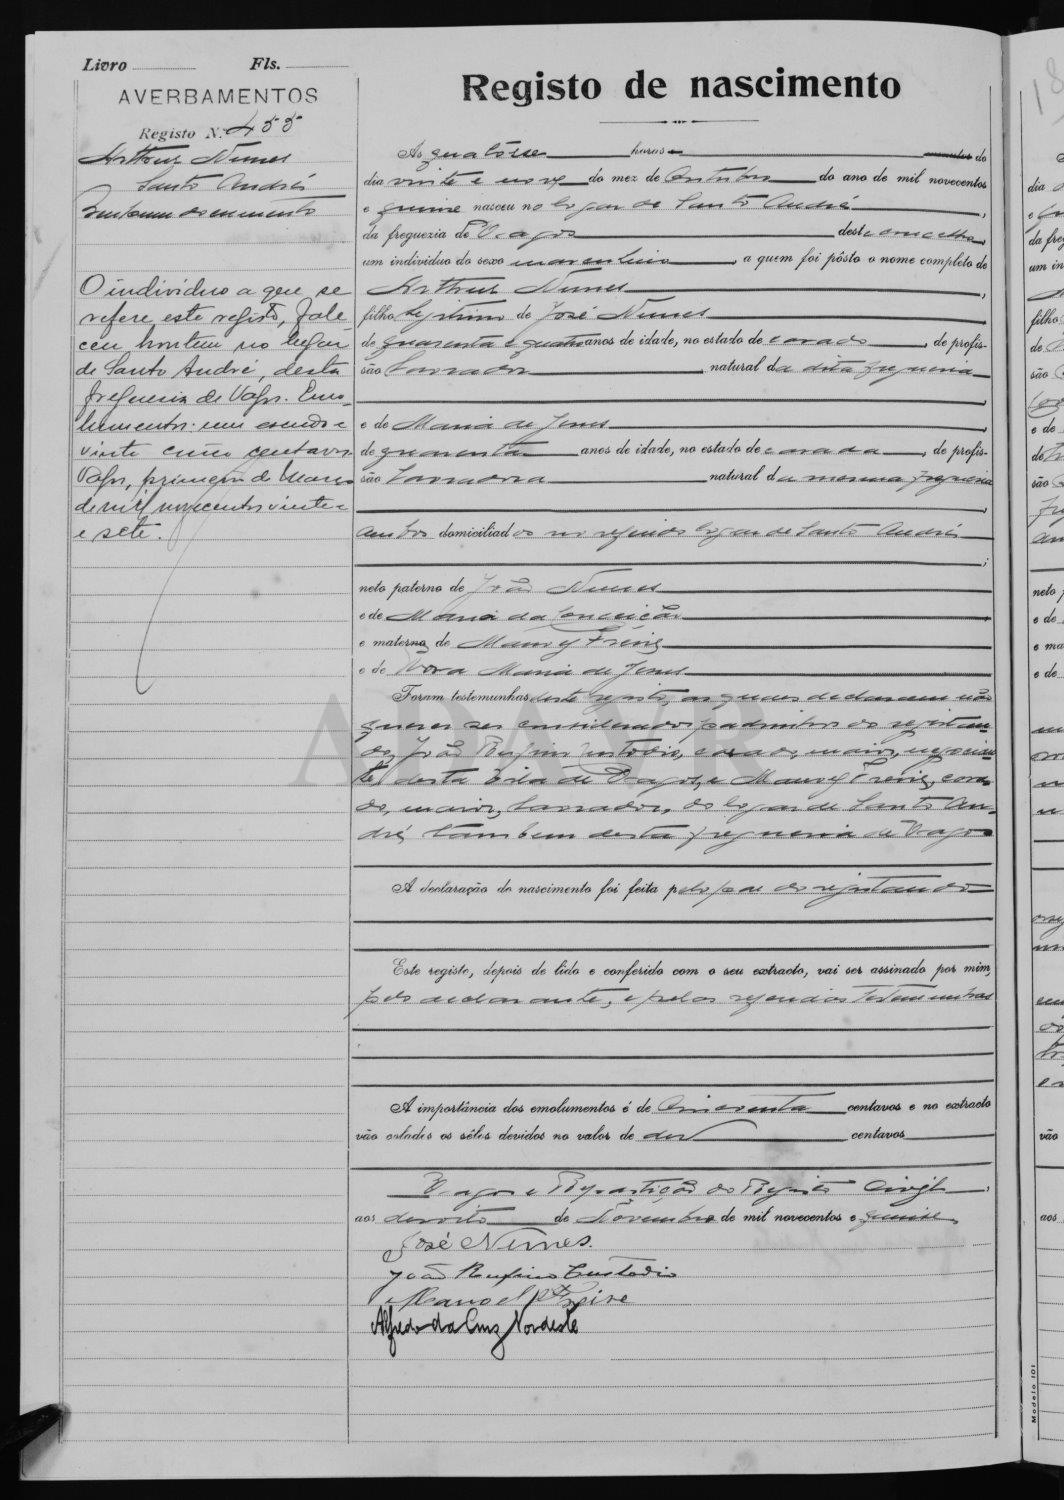 Livro Fls.
AVERBAMENTOS
Registo N.º 455
Arthur Nunes
Santo André
O individuo a que se
refere este registo, fale-
ceu hontem no lugar
de Santo André, desta
freguesia de Vagos. Emo-
lumentos: um escudo e
vinte cinco centavos
Vagos, primeiro de Março
de mil novecentos vinte e
e sete.
Registo de nascimento
Ás quatorze horas do
dia vinte e nove do mez de Outubro do ano de mil novecentos
e quinze nasceu no logar de Santo André,
da freguezia de Vagos deste concelho,
um individuo do sexo masculino, a quem foi pôsto o nome completo de
Arthur Nunes,
filho legitimo de José Nunes
de quarenta e quatro anos de idade, no estado de casado, de profis-
são lavrador natural da dita freguesia
e de Maria de Jesus
de quarenta anos de idade, no estado de casada, de profis-
são lavradora natural da mesma freguesia
ambos domiciliados no referido logar de Santo André
neto paterno de João Nunes
e de Maria da Conceição
e materno de Manoel Freire
e de Rosa Maria de Jesus
Foram testemunhas deste registo, as quaes declararam não
querer ser considerados padrinhos do registan-
do, João Rufino Custodio, casado, maior, negocian-
te, desta vila de Vagos, e Manoel Freire, casa-
do, maior, lavrador, do logar de Santo An-
dré, tambem desta freguesia de Vagos
A declaração do nascimento foi feita pelo pae do registando
Este registo, depois de lido e conferido com o seu extracto, vai ser assinado por mim,
pelo declarante, e pelas referidas testemunhas
A importância dos emolumentos é de cincoenta centavos e no extracto
vão colados os sêlos devidos no valor de dez centavos
Vagos e Repartição do Registo Civil,
aos dezoito de Novembro de mil novecentos e quinze
José Nunes.
João Rufino Custodio
Manoel Freire
Alfredo da Cruz Nordeste
ADAVR
Modelo 101